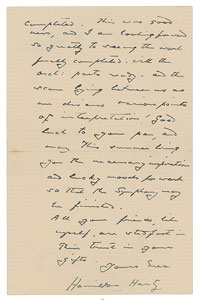 completed. This was good
news, and I am looking forward
so greatly to seeing the work
finally completed, with the
orch: parts ready, and the
score lying between us as
we discuss various points
of interpretation! Good
luck to your pen, and
may this summer bring
you the necessary inspiration
and lucky moods for work
so that the Symphony may
be finished.
All your friends like
myself, are steadfast in
their trust in your
gifts.
Yours Ever
Hamilton Harty